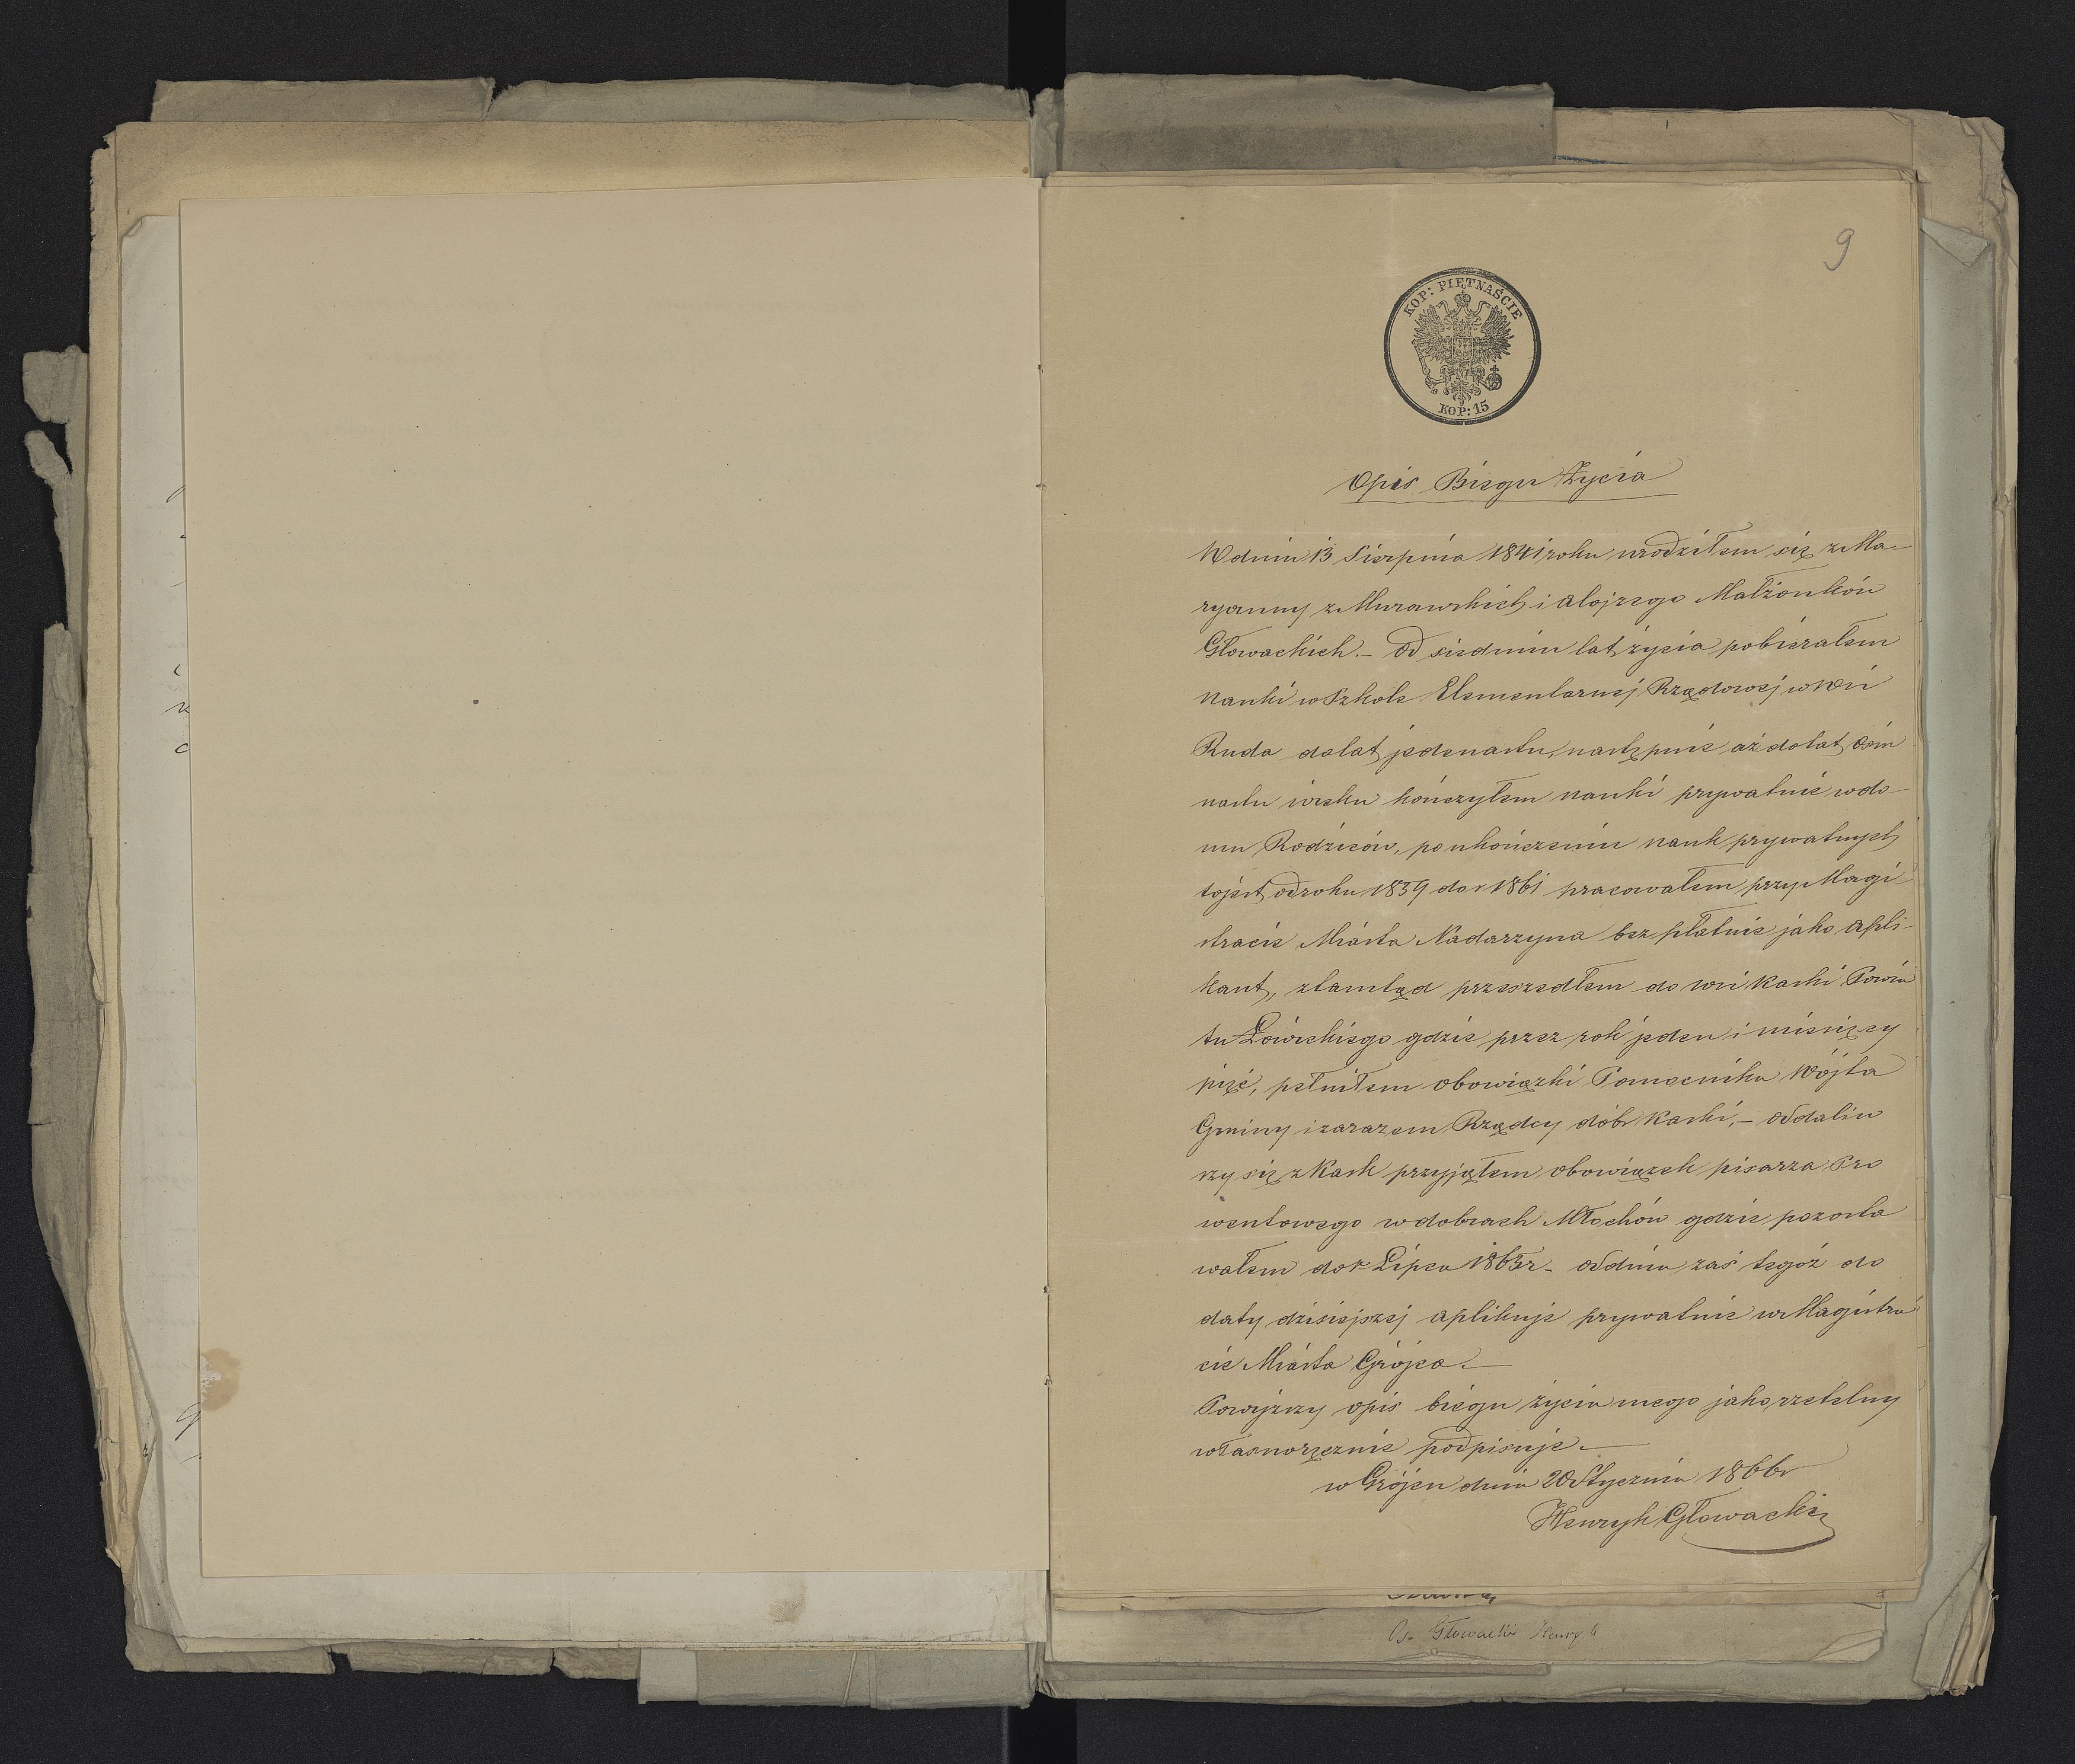 9
KOP: PIĘTNAŚCIE
KOP: 15
Opis Biegu Życia
W dniu 13 Sierpnia 1841 roku urodziłem się z Ma-
ryanny z Murawskich i Alojzego Małżonków
Głowackich. – Od siedmiu lat życia pobierałem
Nauki w Szkole Elementarnej Rządowej w Wsi
Ruda do lat jedenastu, następnie aż do lat Ośm
nastu wieku kończyłem nauki prywatnie w do-
mu Rodziców, po ukończeniu nauk prywatnych
to jest od roku 1859 do r 1861 pracowałem przy Magi-
stracie Miasta Nadarzyna bezpłatnie jako Apli-
kant, ztamtąd przeszedłem do wsi Kaski Powia
tu Łowickiego gdzie przez rok jeden i miesięcy
pięć, pełniłem obowiązki Pomocnika Wójta
Gminy i zarazem Rządcy dóbr Kaski, – oddaliw
szy się z Kask przyjąłem obowiązek pisarza Pro
wentowego w dobrach Młochów gdzie pozosta
wałem do Lipca 1865 r – od dnia zaś tegoż do
daty dzisiejszej aplikuje prywatnie w Magistra
cie Miasta Grójca. –
Powyższy opis biegu życia mego jako rzetelny
własnoręcznie podpisuje. –
w Grójcu dnia 20 Stycznia 1866 r
Henryk Głowacki
Głowacki Henryk